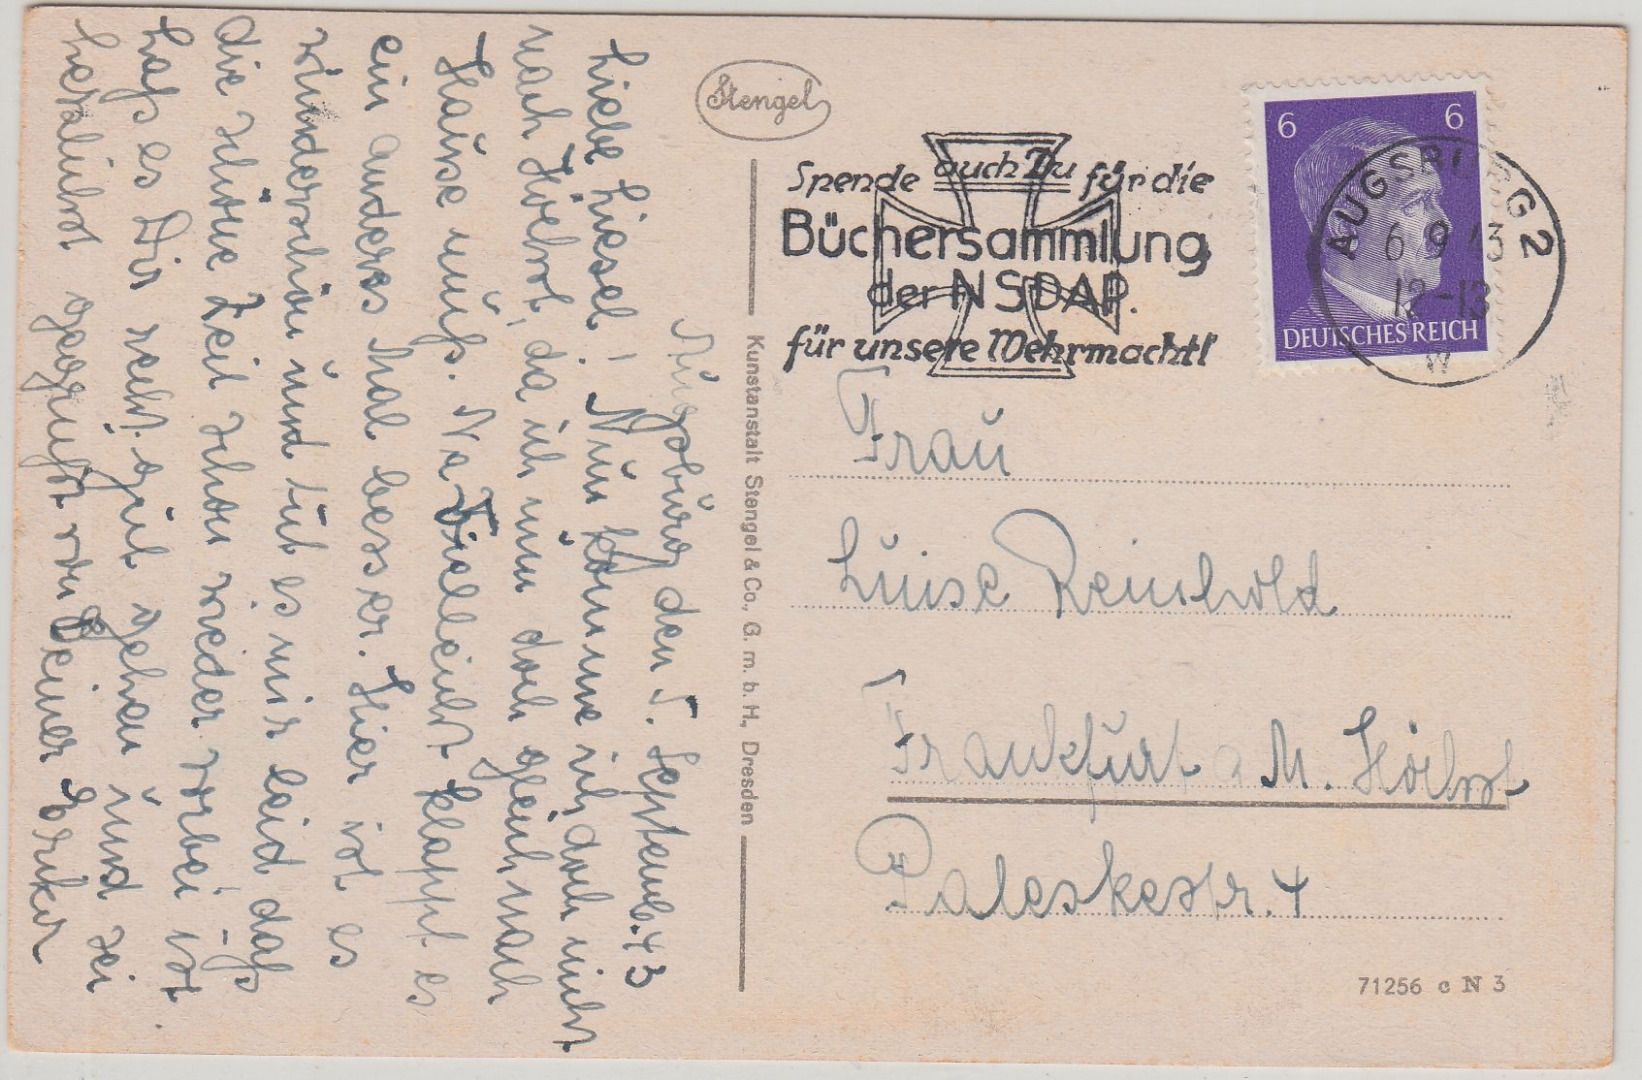 Augsburg den 5. Septemb. 43
Liebe Liesel! Nun komme ich doch nicht
nach Höchst, da ich nun doch gleich nach
Hause muß. Na Vielleicht klappt es
ein anderes mal besser. Hier ist es
wunderschön und tut es mir leid daß
die schöne Zeit schon wieder vorbei ist.
Laß es Dir recht gut gehen und sei
herzlichst gegrüßt von Deiner
Stengel
Kunstanstalt Stengel & Co., G. m. b. H., Dresden
Spende auch Du für die
Büchersammlung
der NSDAP.
für unsere Wehrmacht!
6 6
DEUTSCHES REICH
AUGSBURG 2
6 9 43
12-13
W
Frau
Luise Reinhold
Frankfurt a M. Höchst
Paleskestr. 4
71256 c N 3